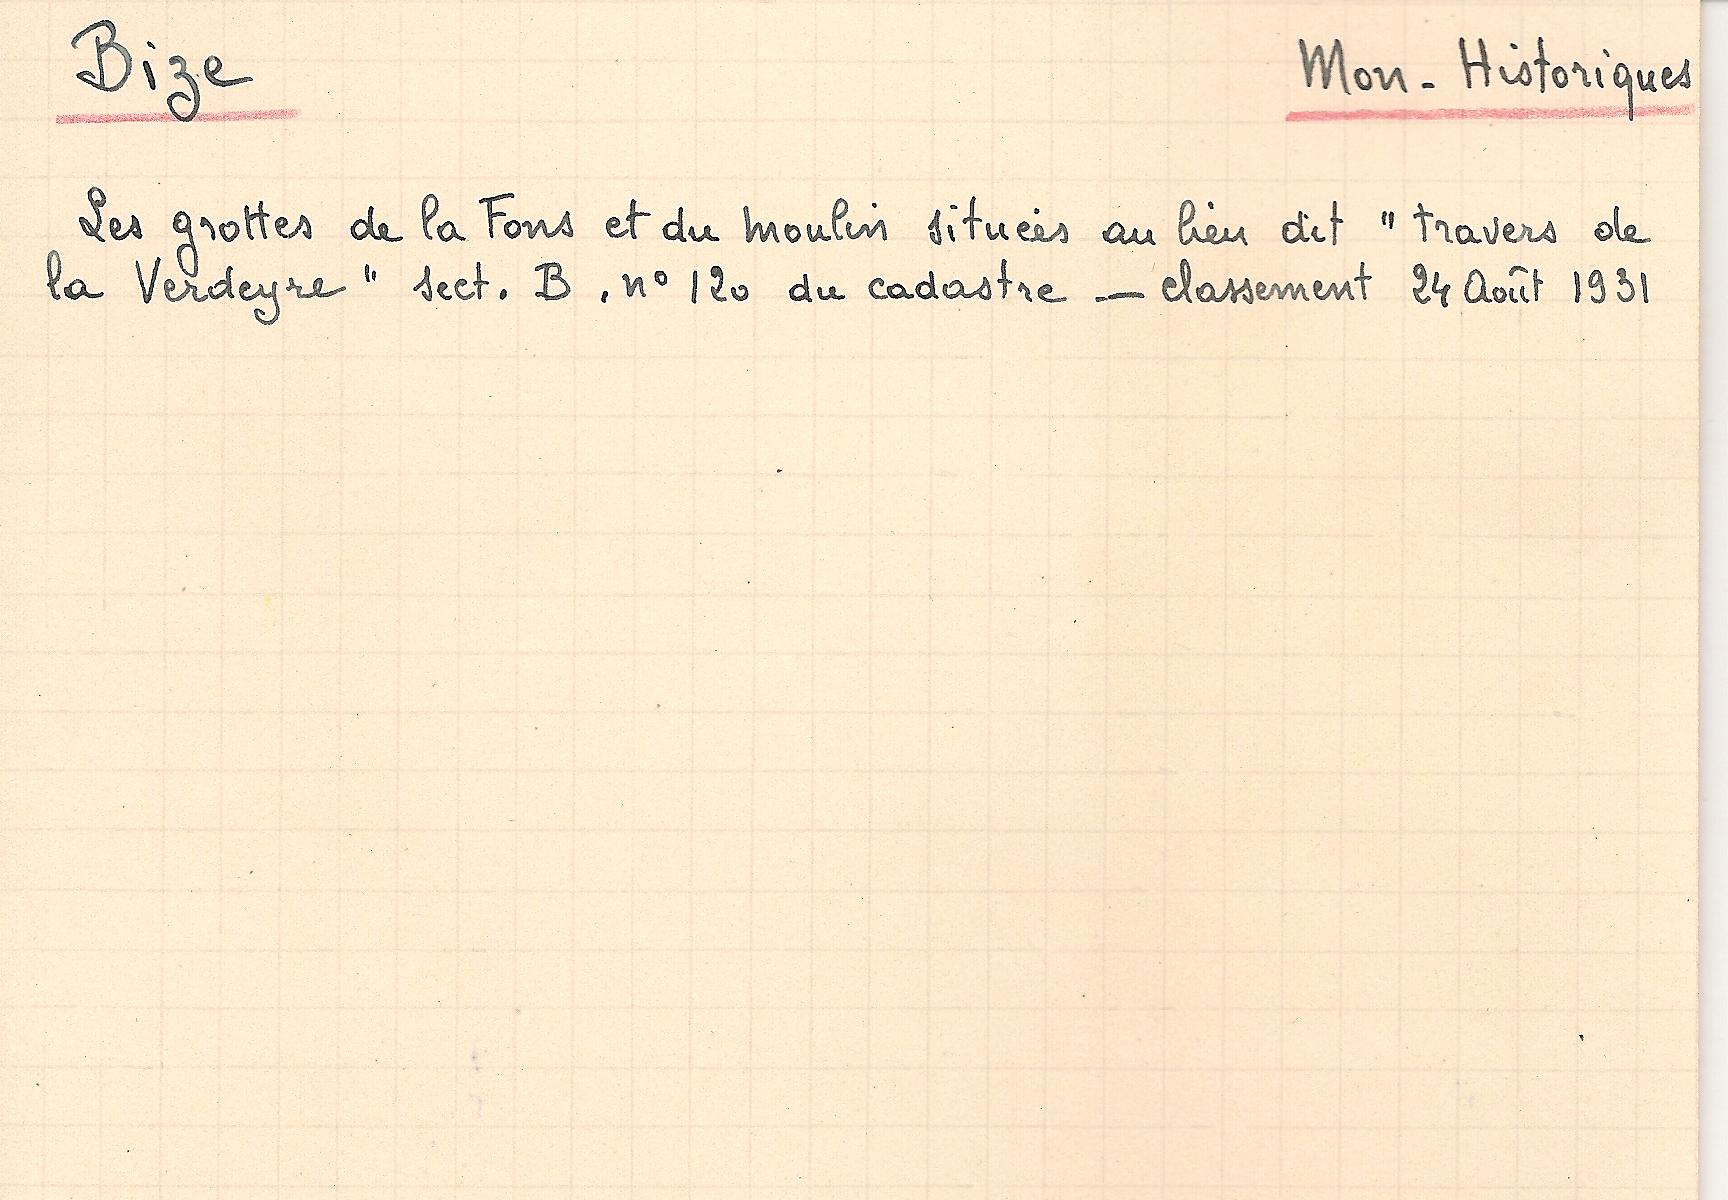 Bize
Mon - Historiques
Les grottes de la Fons et du moulin situées au lieu dit " travers de
la Verdeyre " sect. B . n° 120 du cadastre — classement 24 Août 1931